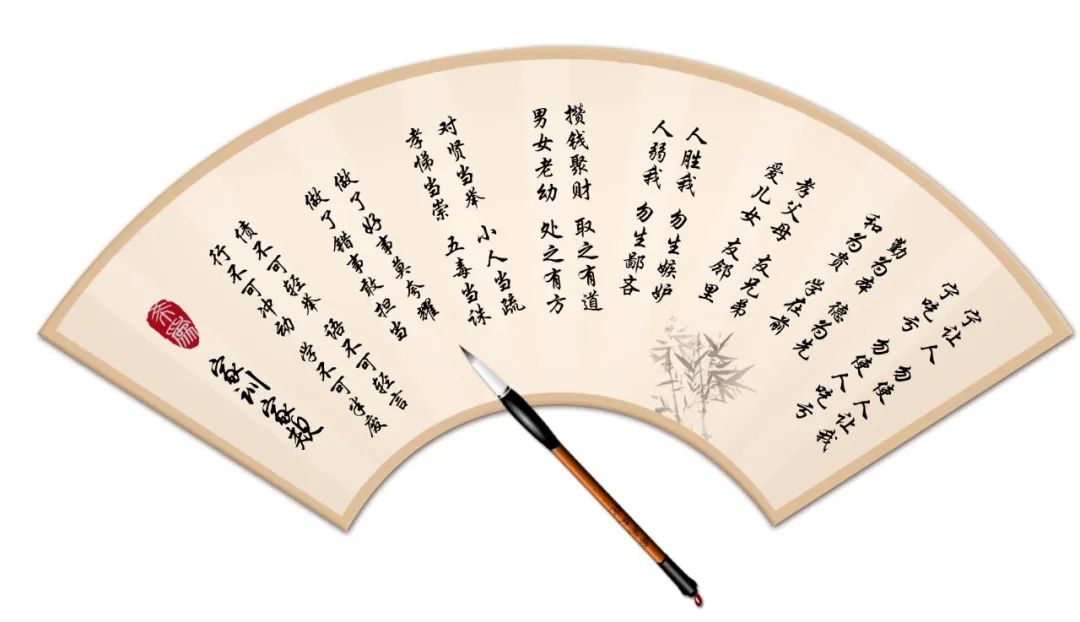 宁让人 勿使人让我
宁吃亏 勿使人吃亏
勤为本 德为先
和为贵 学在前
孝父母 友兄弟
爱儿女 友邻里
人胜我 勿生嫉妒
人弱我 勿生鄙吝
攒钱聚财 取之有道
男女老幼 处之有方
对贤当举 小人当疏
孝悌当崇 五毒当诛
做了好事莫夸耀
做了错事敢担当
债不可轻举 语不可轻言
行不可冲动 学不可半废
家训家规